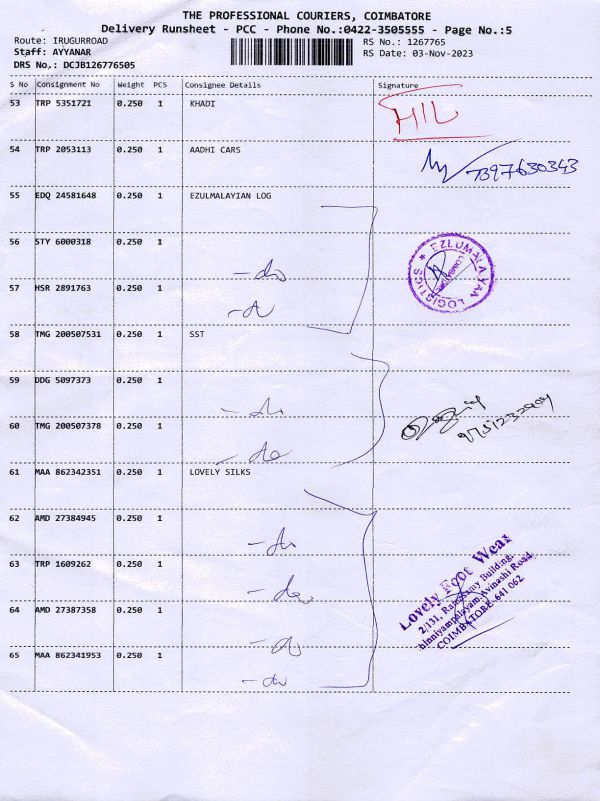 THE PROFESSIONAL COURIERS, COIMBATORE
Delivery Runsheet - PCC - Phone No.:0422-3505555 - Page No.:5
Route: IRUGURROAD
RS No.: 1267765
Staff: AYYANAR
RS Date: 03-Nov-2023
DRS No,: DCJB126776505
S No Consignment No Weight PCS Consignee Details Signature
53 TRP 5351721 0.250 1 KHADI
54 TRP 2053113 0.250 1 AADHI CARS
7397630343
55 EDQ 24581648 0.250 1 EZULMALAYIAN LOG
56 STY 6000318 0.250 1
-do
EZLUMALAYAN LOGISTICS
57 HSR 2891763 0.250 1
58 TMG 200507531 0.250 1 SST
59 DDG 5097373 0.250 1
60 TMG 200507378 0.250 1
-do
61 MAA 862342351 0.250 1 LOVELY SILKS
62 AMD 27384945 0.250 1
63 TRP 1609262 0.250 1
-do
64 AMD 27387358 0.250 1
-do
65 MAA 862341953 0.250 1
-do
Lovely Foot Wear
2/131, Ramasamy Building,
hinniyampalayam, Avinashi Road,
COIMBATORE-641 062.